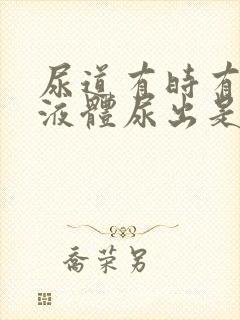 尿道有時有
液體尿出是
喬荣另